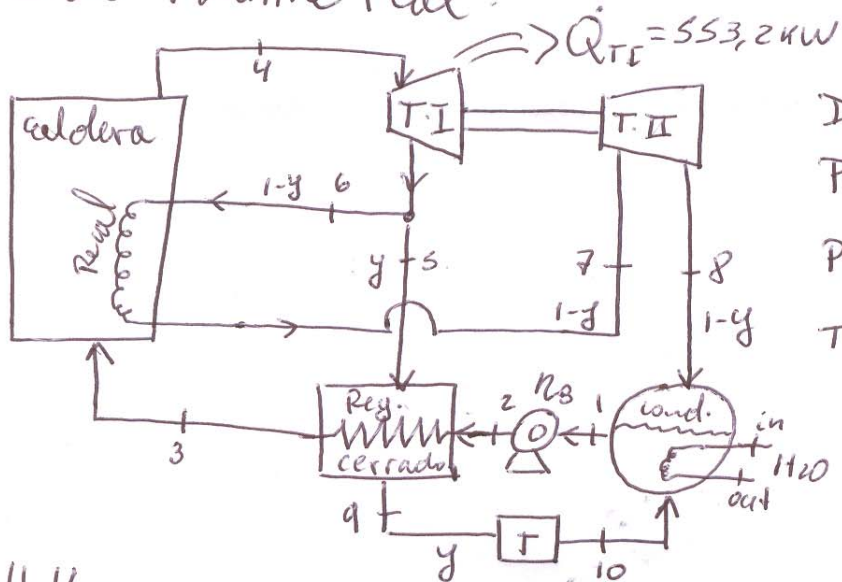 Q̇TI = 553,2 kW
4
T.I
T.II
Caldera
Recal
1-y 6
y 5
7
8
1-y
1-y
3
Reg.
cerrado
2
ηB
1
cond.
in
H2O
out
9
y
T
10